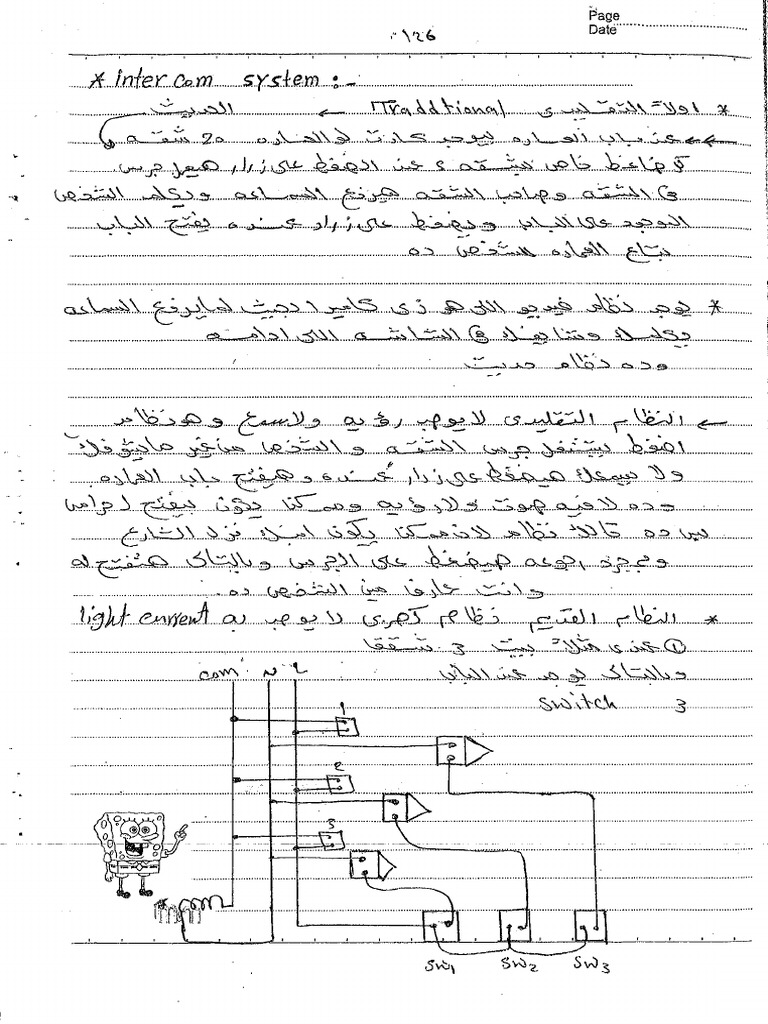 Page
Date
126
* Inter com system :-
* اولاً التقليدى Traddtional ← الحديث
عند باب العماره يوجد كارت لو العماره 20 شقه
ضاغط خاص بشقه و عند الضغط على زرار هيعمل جرس
فى الشقه وصاحب الشقه هيرفع السماعه ويكلم الشخص
الموجود على الباب ويضغط على زرار عنده يفتح الباب
بتاع العماره للشخص ده
* يوجد نظام فيديو اللى هو زى كاميرا بحيث لما يرفع السماعه
يكلمك وشايفك فى الشاشه اللى ادامه
وده نظام حديث
← النظام التقليدى لا يوجد رؤيه ولا سمع وهو نظام
اضغط يشتغل جرس الشقه و الشخص من غير ما يشوفك
ولا يسمعك هيضغط على زرار عنده وهيفتح باب العماره
وده لا فيه صوت ولا رؤيه وممكن يكون بيفتح لحرامى
بس ده كان نظام لان ممكن يكون ابنك نزل الشارع
وبمجرد رجوعه هيضغط على الجرس وبالتالى هتفتح له
وانت عارف مين الشخص ده.
* النظام القديم نظام كهربى لا يوجد به light current
① عندى مثلاً بيت 3 شقق
وبالتالى يوجد عند الباب
3 switch
com N L
1
2
3
SW1 SW2 SW3